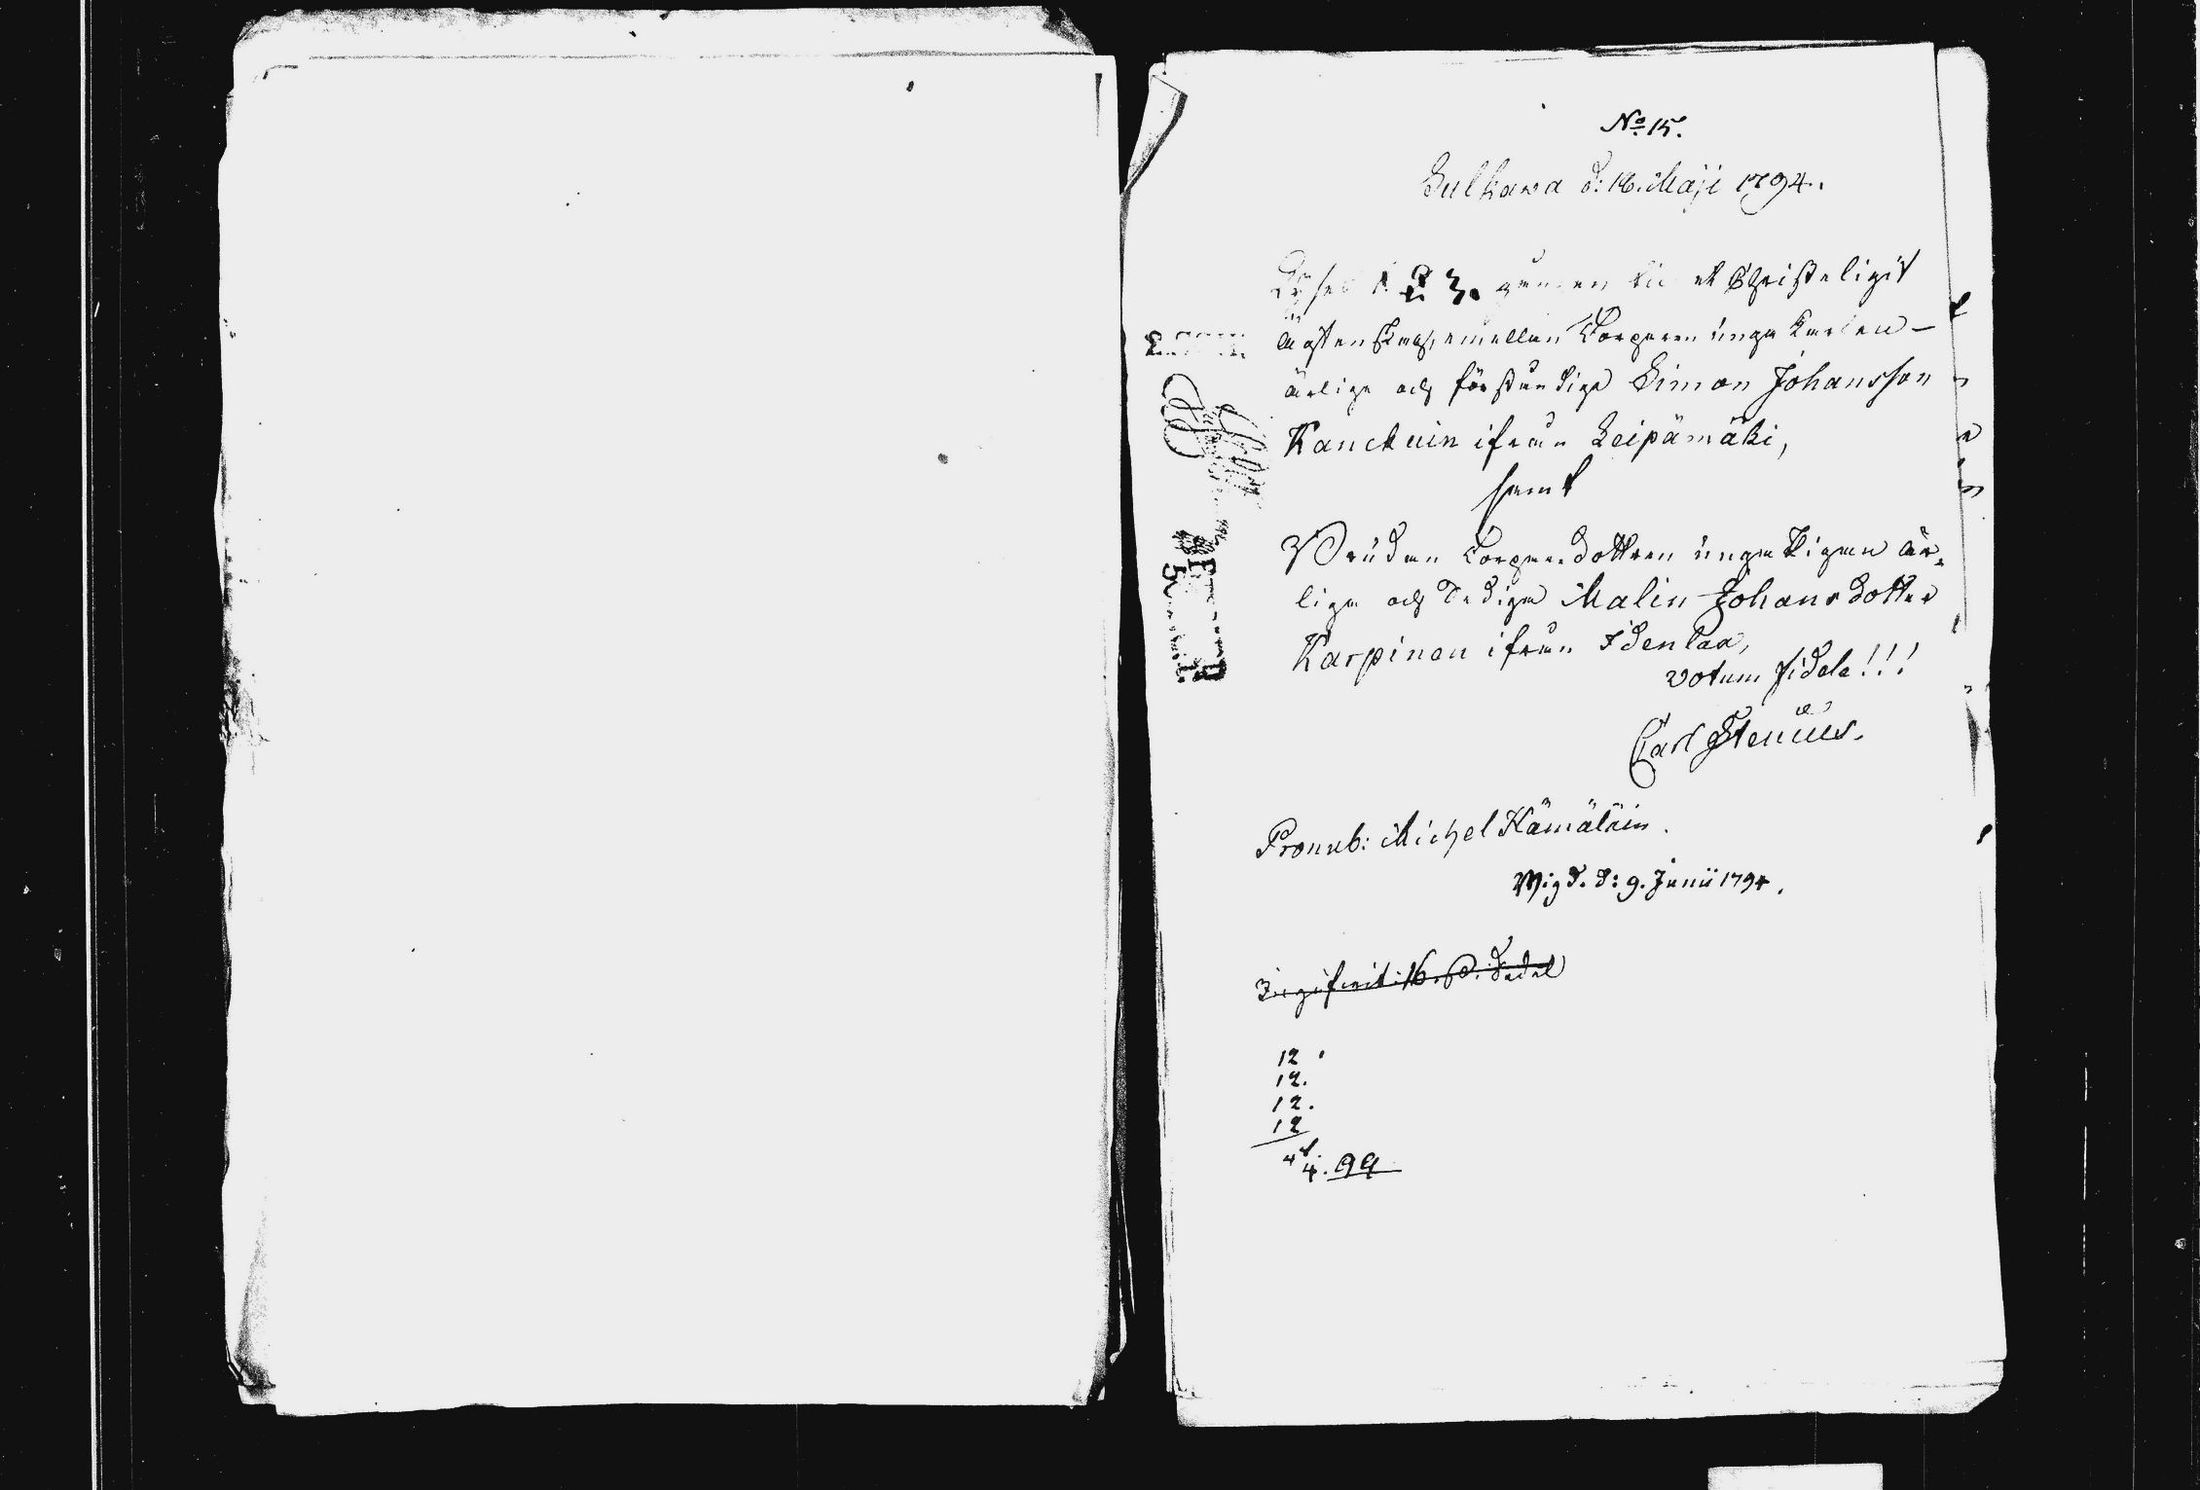 No 15.
Sulkawa d: 18. Maji 1794.
Lyses 1. 2. 3. gången til et Christeligit
äcktenskap, emellan Torparen unga Karlen
ärlige och förståndige Simon Johansson
Kanckuin ifrån Leipämäki,
samt
Bruden Torparedottren unga Pigan är-
liga och dydiga Malin Johansdotter
Karpinen ifrån Idenlax,
votum fidele!!!
Carl Stenius.
Pronub: Michel Hämäläin.
Wigd. d: 9. Junii 1794.
12
12.
12.
12
48.
4. 99